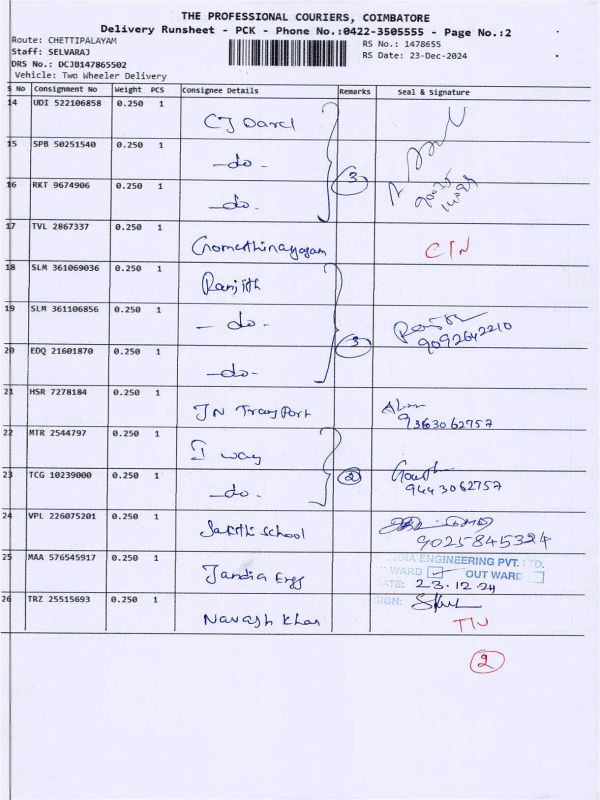 THE PROFESSIONAL COURIERS, COIMBATORE
Delivery Runsheet - PCK - Phone No.:0422-3505555 - Page No.:2
Route: CHETTIPALAYAM
Staff: SELVARAJ
DRS No.: DCJB147865502
Vehicle: Two Wheeler Delivery
RS No.: 1478655
RS Date: 23-Dec-2024
S No Consignment No Weight PCS Consignee Details Remarks Seal & Signature
14 UDI 522106858 0.250 1
15 SPB 50251540 0.250 1 -do-
16 RKT 9674906 0.250 1 -do- 3
17 TVL 2867337 0.250 1 CIN
18 SLM 361069036 0.250 1 Ranjith
19 SLM 361106856 0.250 1 -do- 3 9092642210
20 EDQ 21601870 0.250 1 -do-
21 HSR 7278184 0.250 1 JN Transport 9363062757
22 MTR 2544797 0.250 1 I way
23 TCG 10239000 0.250 1 -do- 2 9443062757
24 VPL 226075201 0.250 1 Sakthi School 9025845324
25 MAA 576545917 0.250 1 Jandia Engg
ENGINEERING PVT. LTD.
WARD OUT WARD
DATE: 23.12.24
SIGN:
26 TRZ 25515693 0.250 1 Navash Khan
2